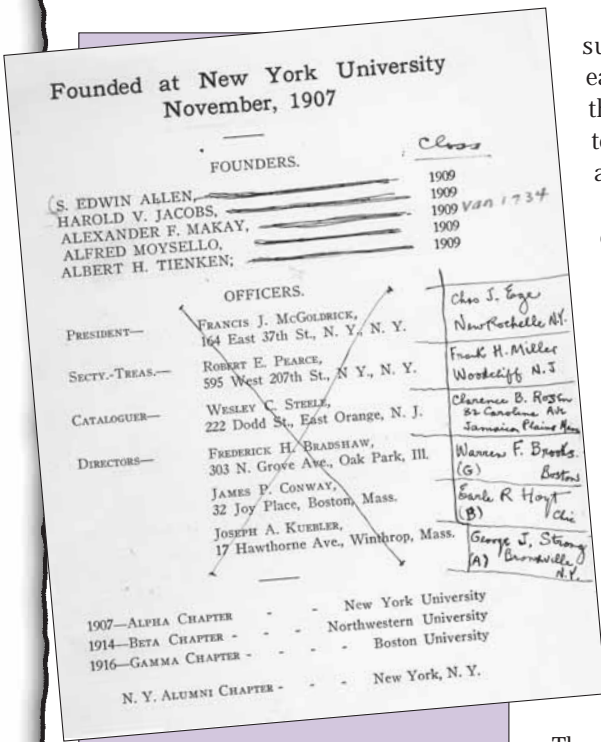 Founded at New York University
November, 1907
Class
FOUNDERS.
S. EDWIN ALLEN, 1909
HAROLD V. JACOBS, 1909
ALEXANDER F. MAKAY, 1909 Van 1734
ALFRED MOYSELLO, 1909
ALBERT H. TIENKEN; 1909
OFFICERS.
PRESIDENT— FRANCIS J. MCGOLDRICK,
164 East 37th St., N. Y., N. Y.
Chas J. Ege
New Rochelle N.Y.
SECTY.-TREAS.— ROBERT E. PEARCE,
595 West 207th St., N Y., N. Y.
Frank H. Miller
Woodcliff N.J
CATALOGUER— WESLEY C. STEELE,
222 Dodd St., East Orange, N. J.
Clarence B.
82 Caroline Ave
Jamaica Plains Mass
DIRECTORS— FREDERICK H. BRADSHAW,
303 N. Grove Ave., Oak Park, Ill.
Warren F. Brooks
(G) Boston
JAMES P. CONWAY,
32 Joy Place, Boston, Mass.
Earle R Hoyt
(B) Chic
JOSEPH A. KUEBLER,
17 Hawthorne Ave., Winthrop, Mass.
George J. Strong
(A) Bronxville
N.Y.
1907—ALPHA CHAPTER - - New York University
1914—BETA CHAPTER - - - Northwestern University
1916—GAMMA CHAPTER - - - Boston University
N. Y. ALUMNI CHAPTER - - - New York, N. Y.